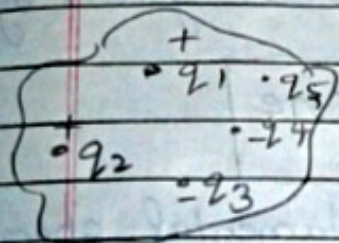 +
• q1 • q5
+
• q2 • -q4
• -q3